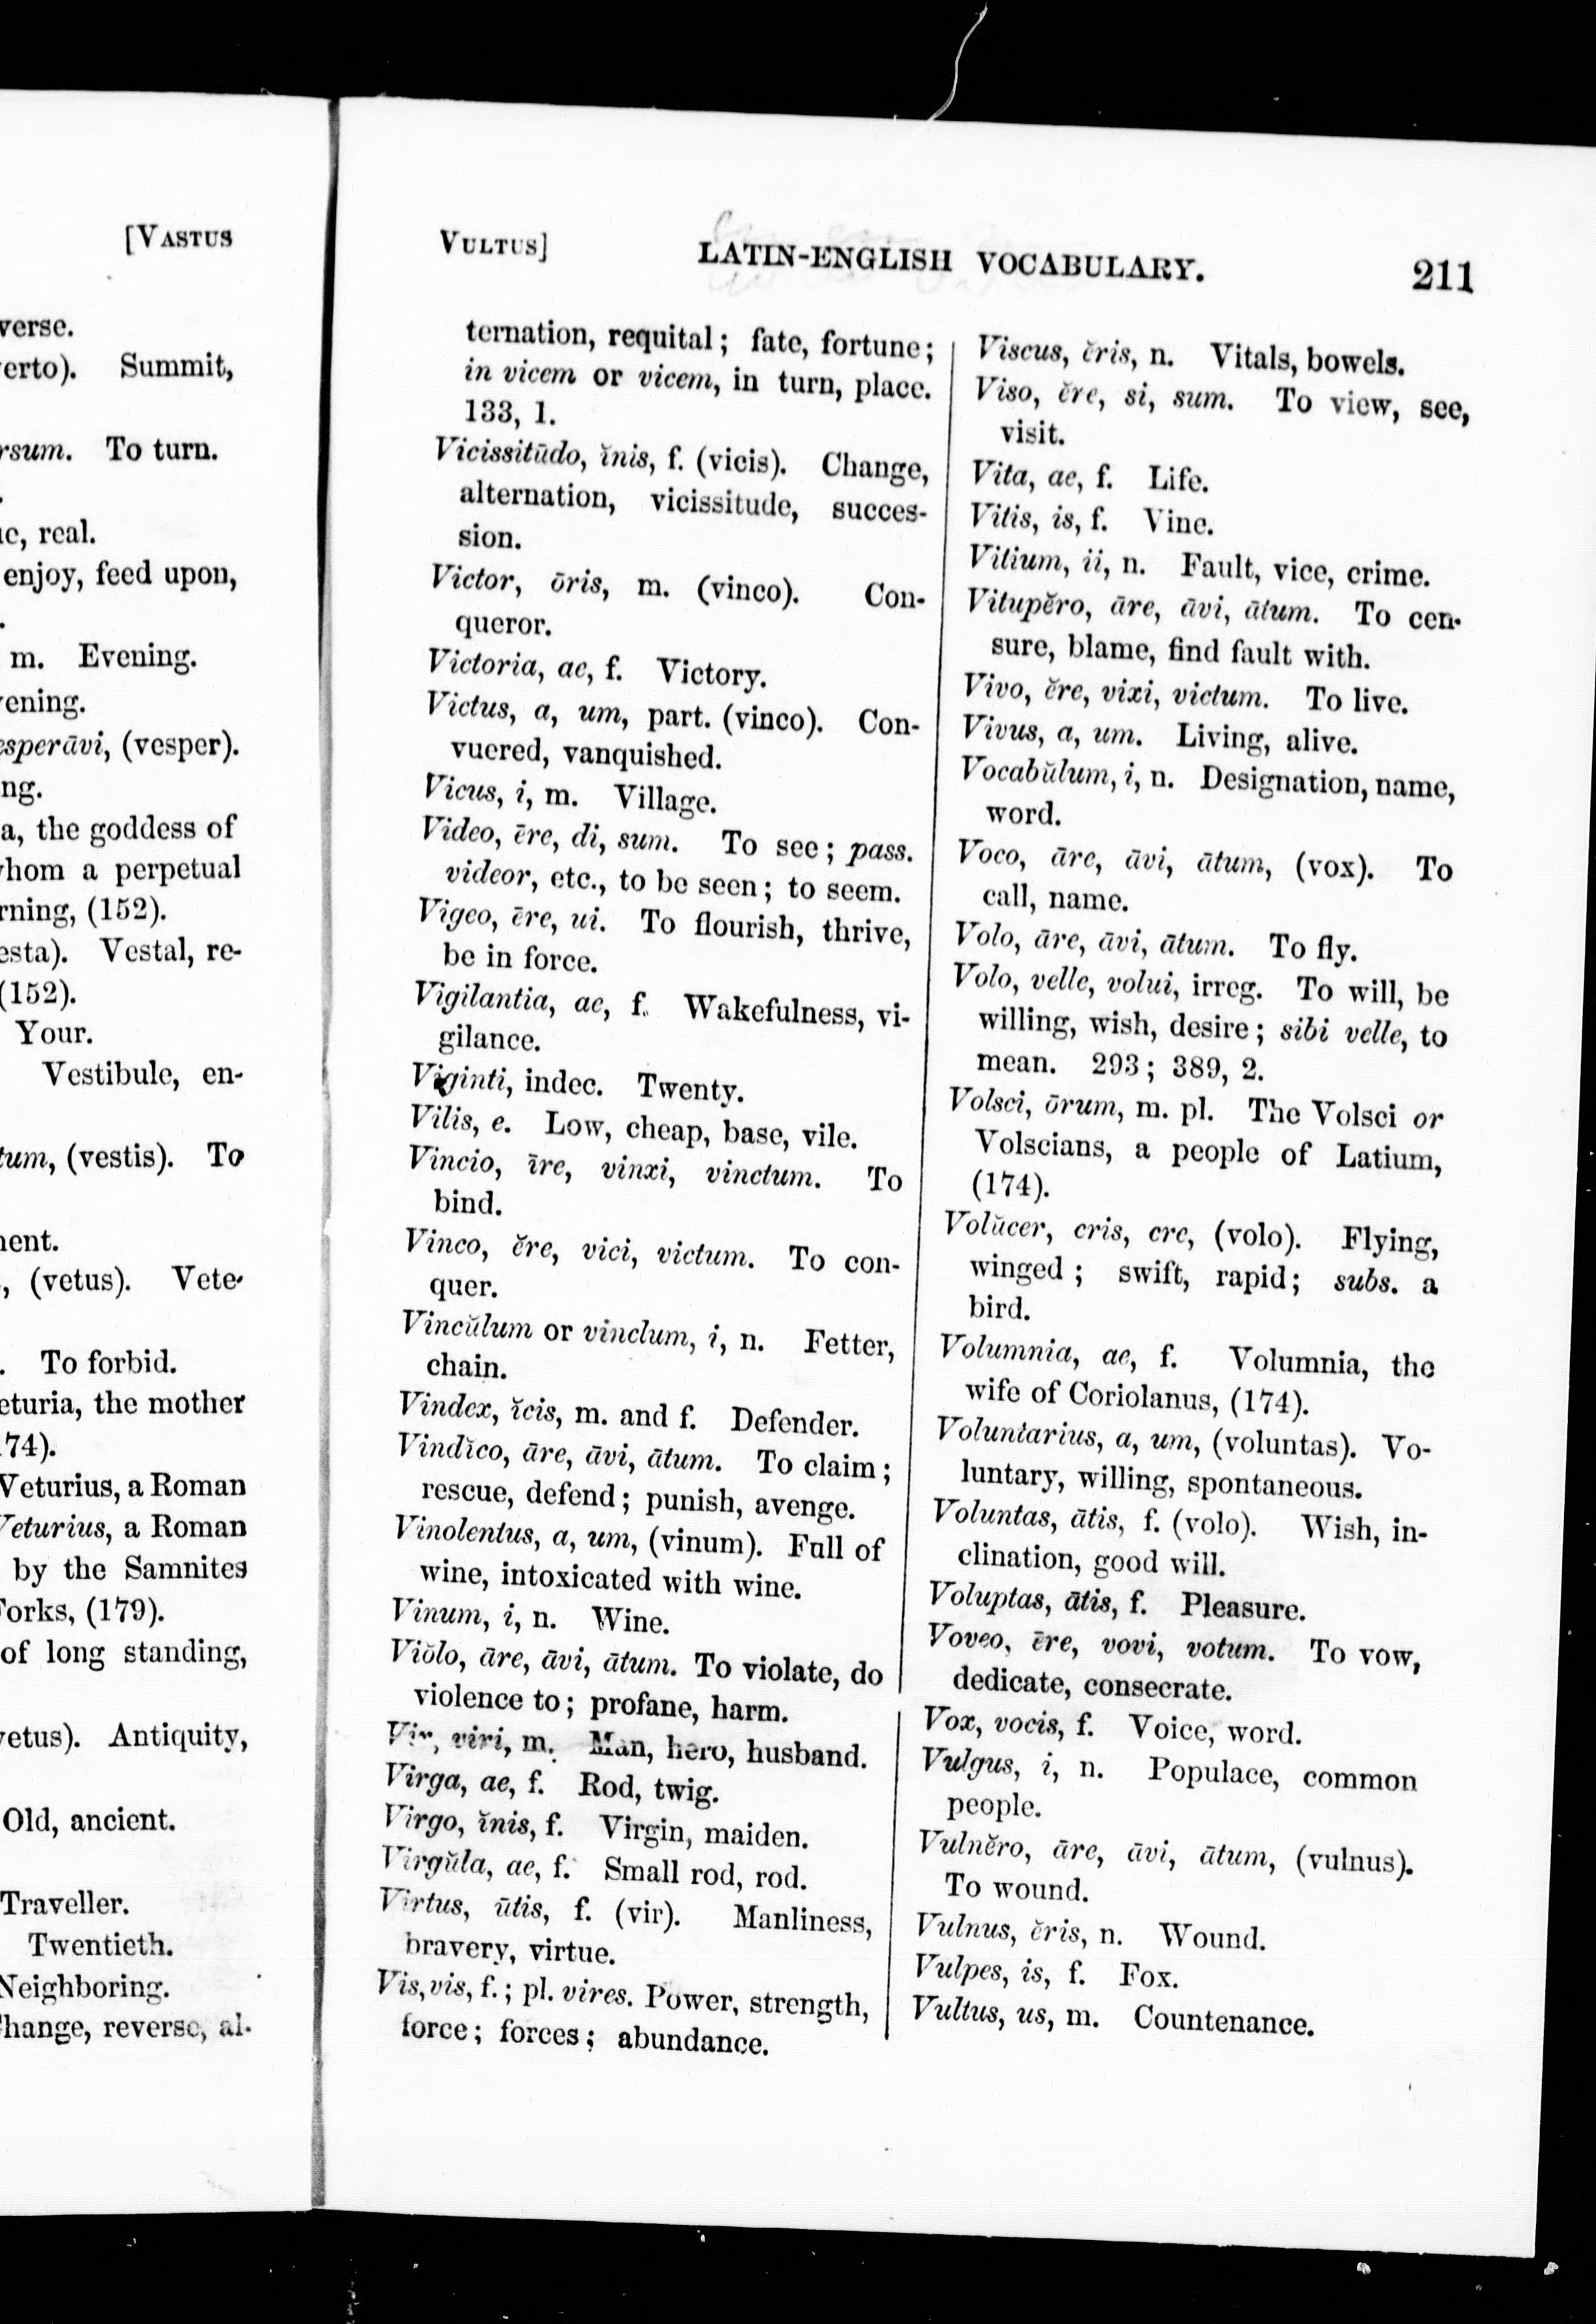 [VASTUS
verse.
erto). Summit,
rsum. To turn.
real.
enjoy, feed upon,
m. Evening.
esperāvi, (vesper).
a, the goddess of
whom a perpetual
(152).
esta). Vestal, re-
(152).
Your.
Vestibule, en-
tum, (vestis). To
(vetus). Vete-
To forbid.
eturia, the mother
74).
Veturius, a Roman
Veturius, a Roman
by the Samnites
Forks, (179).
of long standing,
vetus). Antiquity,
Old, ancient.
Traveller.
Twentieth.
Neighboring.
Change, reverse, al-
VULTUS] LATIN-ENGLISH VOCABULARY. 211
ternation, requital; fate, fortune;
in vicem or vicem, in turn, place.
133, 1.
Vicissitūdo, ĭnis, f. (vicis). Change,
alternation, vicissitude, succes-
sion.
Victor, ōris, m. (vinco). Con-
queror.
Victoria, ae, f. Victory.
Victus, a, um, part. (vinco). Con-
vuered, vanquished.
Vicus, i, m. Village.
Video, ēre, di, sum. To see; pass.
videor, etc., to be seen; to seem.
Vigeo, ēre, ui. To flourish, thrive,
be in force.
Vigilantia, ae, f. Wakefulness, vi-
gilance.
Viginti, indec. Twenty.
Vilis, e. Low, cheap, base, vile.
Vincio, īre, vinxi, vinctum. To
bind.
Vinco, ĕre, vici, victum. To con-
quer.
Vincŭlum or vinclum, i, n. Fetter,
chain.
Vindex, ĭcis, m. and f. Defender.
Vindĭco, āre, āvi, ātum. To claim;
rescue, defend; punish, avenge.
Vinolentus, a, um, (vinum). Full of
wine, intoxicated with wine.
Vinum, i, n. Wine.
Viŏlo, āre, āvi, ātum. To violate, do
violence to; profane, harm.
Vir, viri, m. Man, hero, husband.
Virga, ae, f. Rod, twig.
Virgo, ĭnis, f. Virgin, maiden.
Virgŭla, ae, f. Small rod, rod.
Virtus, ūtis, f. (vir). Manliness,
bravery, virtue.
Vis, vis, f.; pl. vires. Power, strength,
force; forces; abundance.
Viscus, ĕris, n. Vitals, bowels.
Viso, ĕre, si, sum. To view, see,
visit.
Vita, ae, f. Life.
Vitis, is, f. Vine.
Vitium, ii, n. Fault, vice, crime.
Vitupĕro, āre, āvi, ātum. To cen-
sure, blame, find fault with.
Vivo, ĕre, vixi, victum. To live.
Vivus, a, um. Living, alive.
Vocabŭlum, i, n. Designation, name,
word.
Voco, āre, āvi, ātum, (vox). To
call, name.
Volo, āre, āvi, ātum. To fly.
Volo, velle, volui, irreg. To will, be
willing, wish, desire; sibi velle, to
mean. 293; 389, 2.
Volsci, ōrum, m. pl. The Volsci or
Volscians, a people of Latium,
(174).
Volŭcer, cris, cre, (volo). Flying,
winged; swift, rapid; subs. a
bird.
Volumnia, ae, f. Volumnia, the
wife of Coriolanus, (174).
Voluntarius, a, um, (voluntas). Vo-
luntary, willing, spontaneous.
Voluntas, ātis, f. (volo). Wish, in-
clination, good will.
Voluptas, ātis, f. Pleasure.
Voveo, ēre, vovi, votum. To vow,
dedicate, consecrate.
Vox, vocis, f. Voice, word.
Vulgus, i, n. Populace, common
people.
Vulnĕro, āre, āvi, ātum, (vulnus).
To wound.
Vulnus, ĕris, n. Wound.
Vulpes, is, f. Fox.
Vultus, us, m. Countenance.